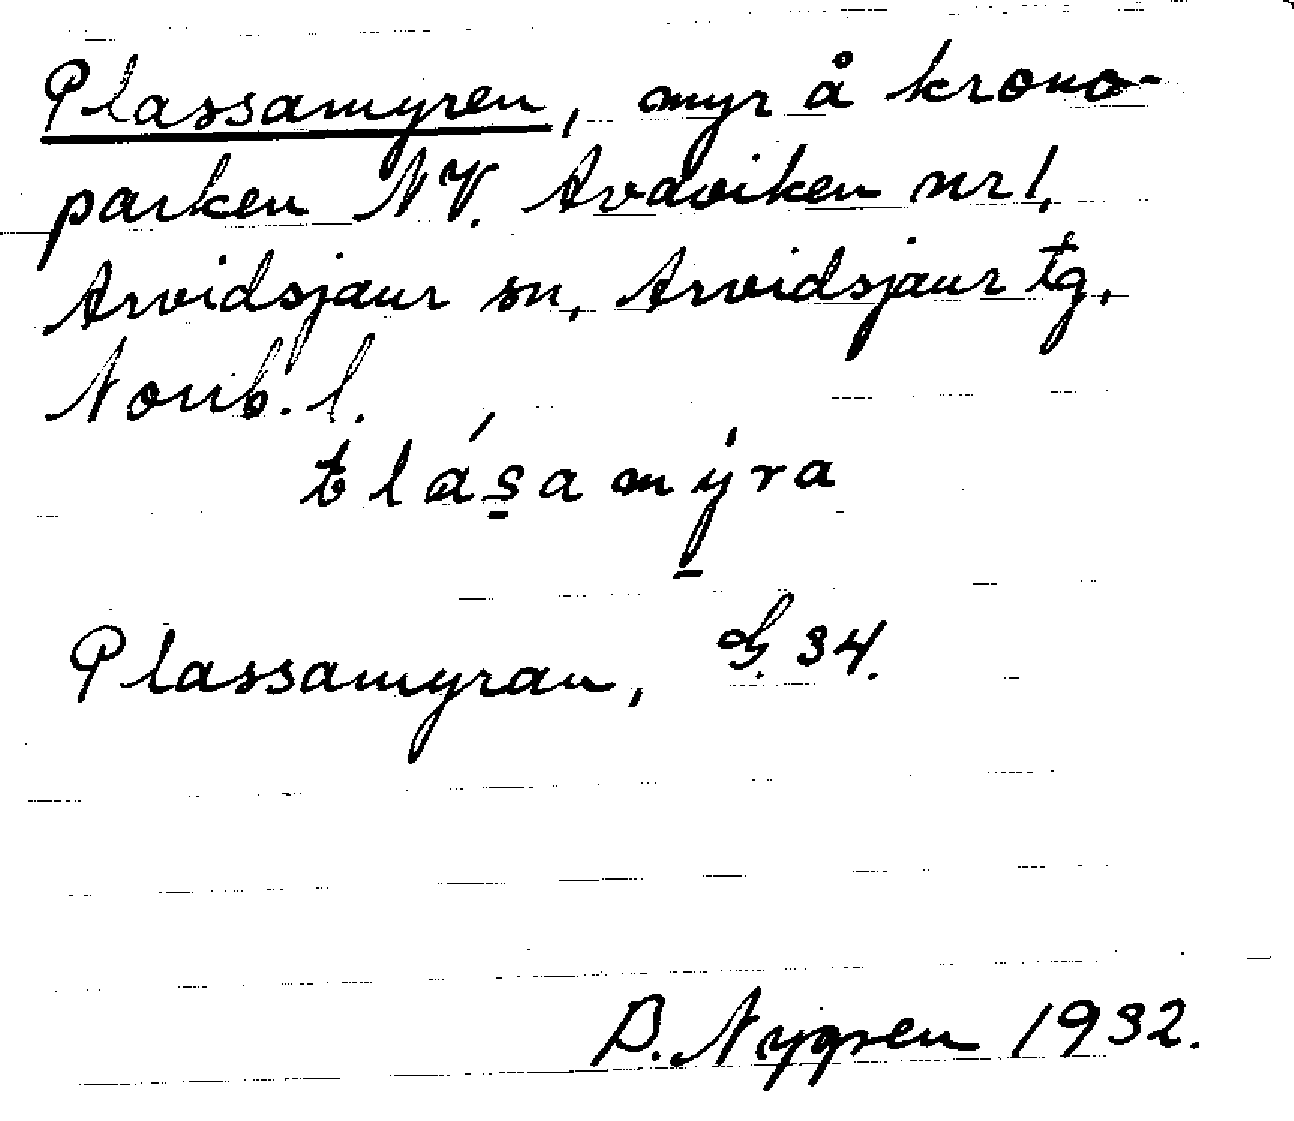 Plassamyren, myr å krono-
parken NV. Avaviken nr 1,
Arvidsjaur sn, Arvidsjaur tg,
Norrb. l.
tlása mýra
Plassamyran, G. 34.
B. Nygren 1932.